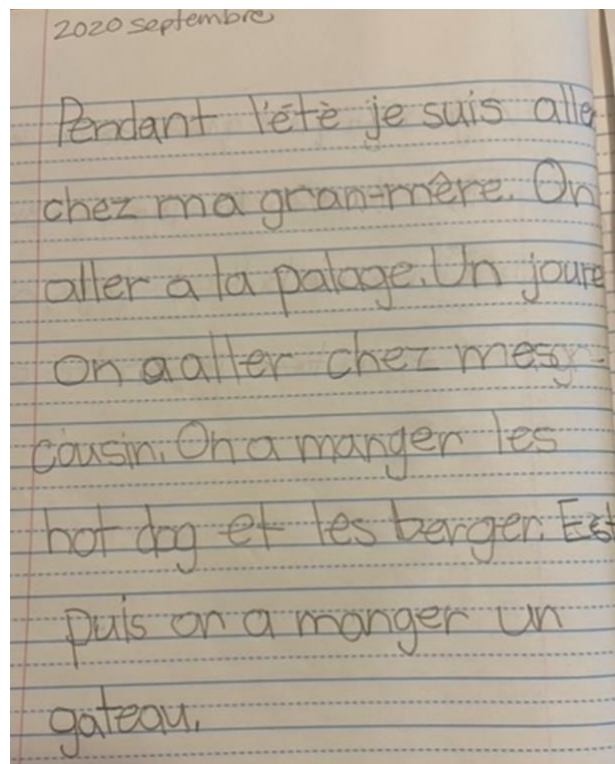 2020 septembre
Pendant l'été je suis aller
chez ma gran-mère. On
aller a la palage. Un joure
on a aller chez mes
cousin. On a manger les
hot dog et les berger. Est
puis on a manger un
gateau.